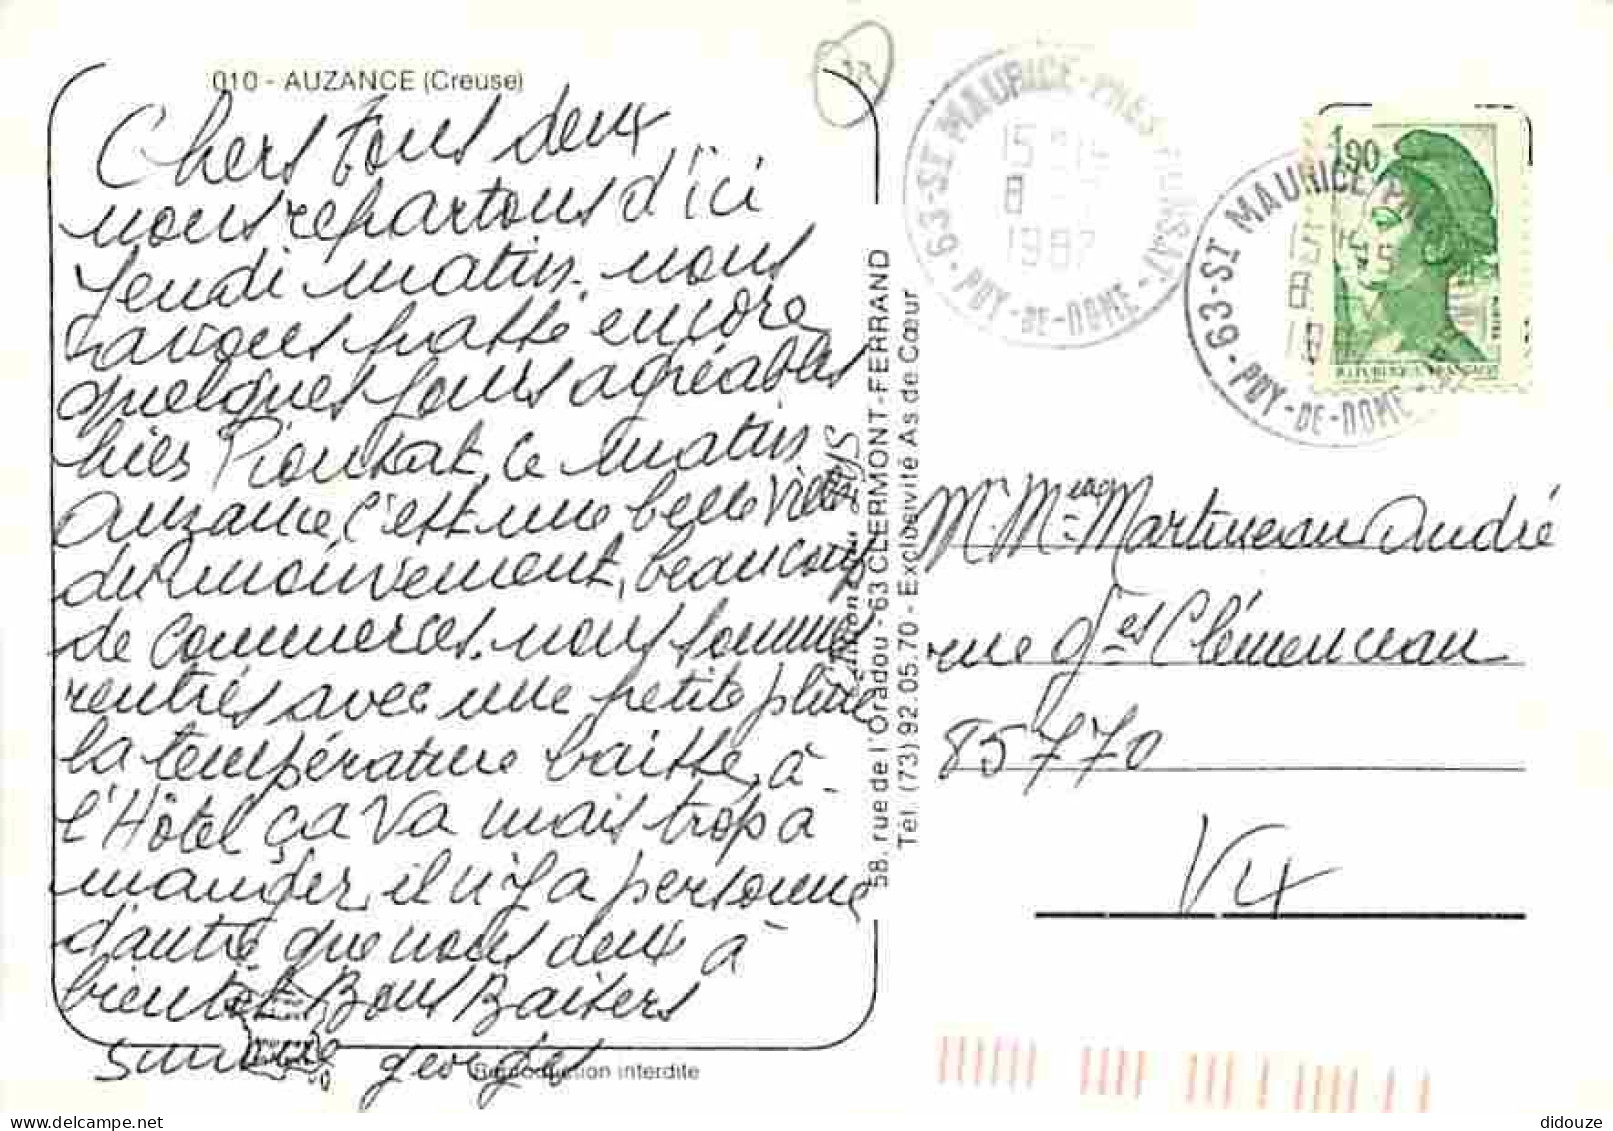 010 - AUZANCE (Creuse)
Chers tous deux
nous repartons d'ici
Jeudi matin. nous
avons passé encore
quelques jours agréables
hier Pionsat, ce matin
Auzance, c'est une belle ville
du mouvement, beaucoup
de commerces. nous sommes
rentrés avec une petite pluie
la température baisse, à
l'Hôtel ça va mais trop à
manger, il n'y a personne
d'autre que nous deux à
bientôt Bons Baisers
Simone georges
Reproduction interdite
58, rue de l'Oradou - 63 CLERMONT-FERRAND
Tél. (73) 92.05.70 - Exclusivité As de Cœur
63-ST MAURICE-PRES-PIONSAT
15
8
1987
PUY-DE-DOME
63-ST MAURICE
15
8
PUY-DE-DOME
1,90
Mr. Mme Martineau André
rue Ges Clémenceau
85770
Vix
didouze